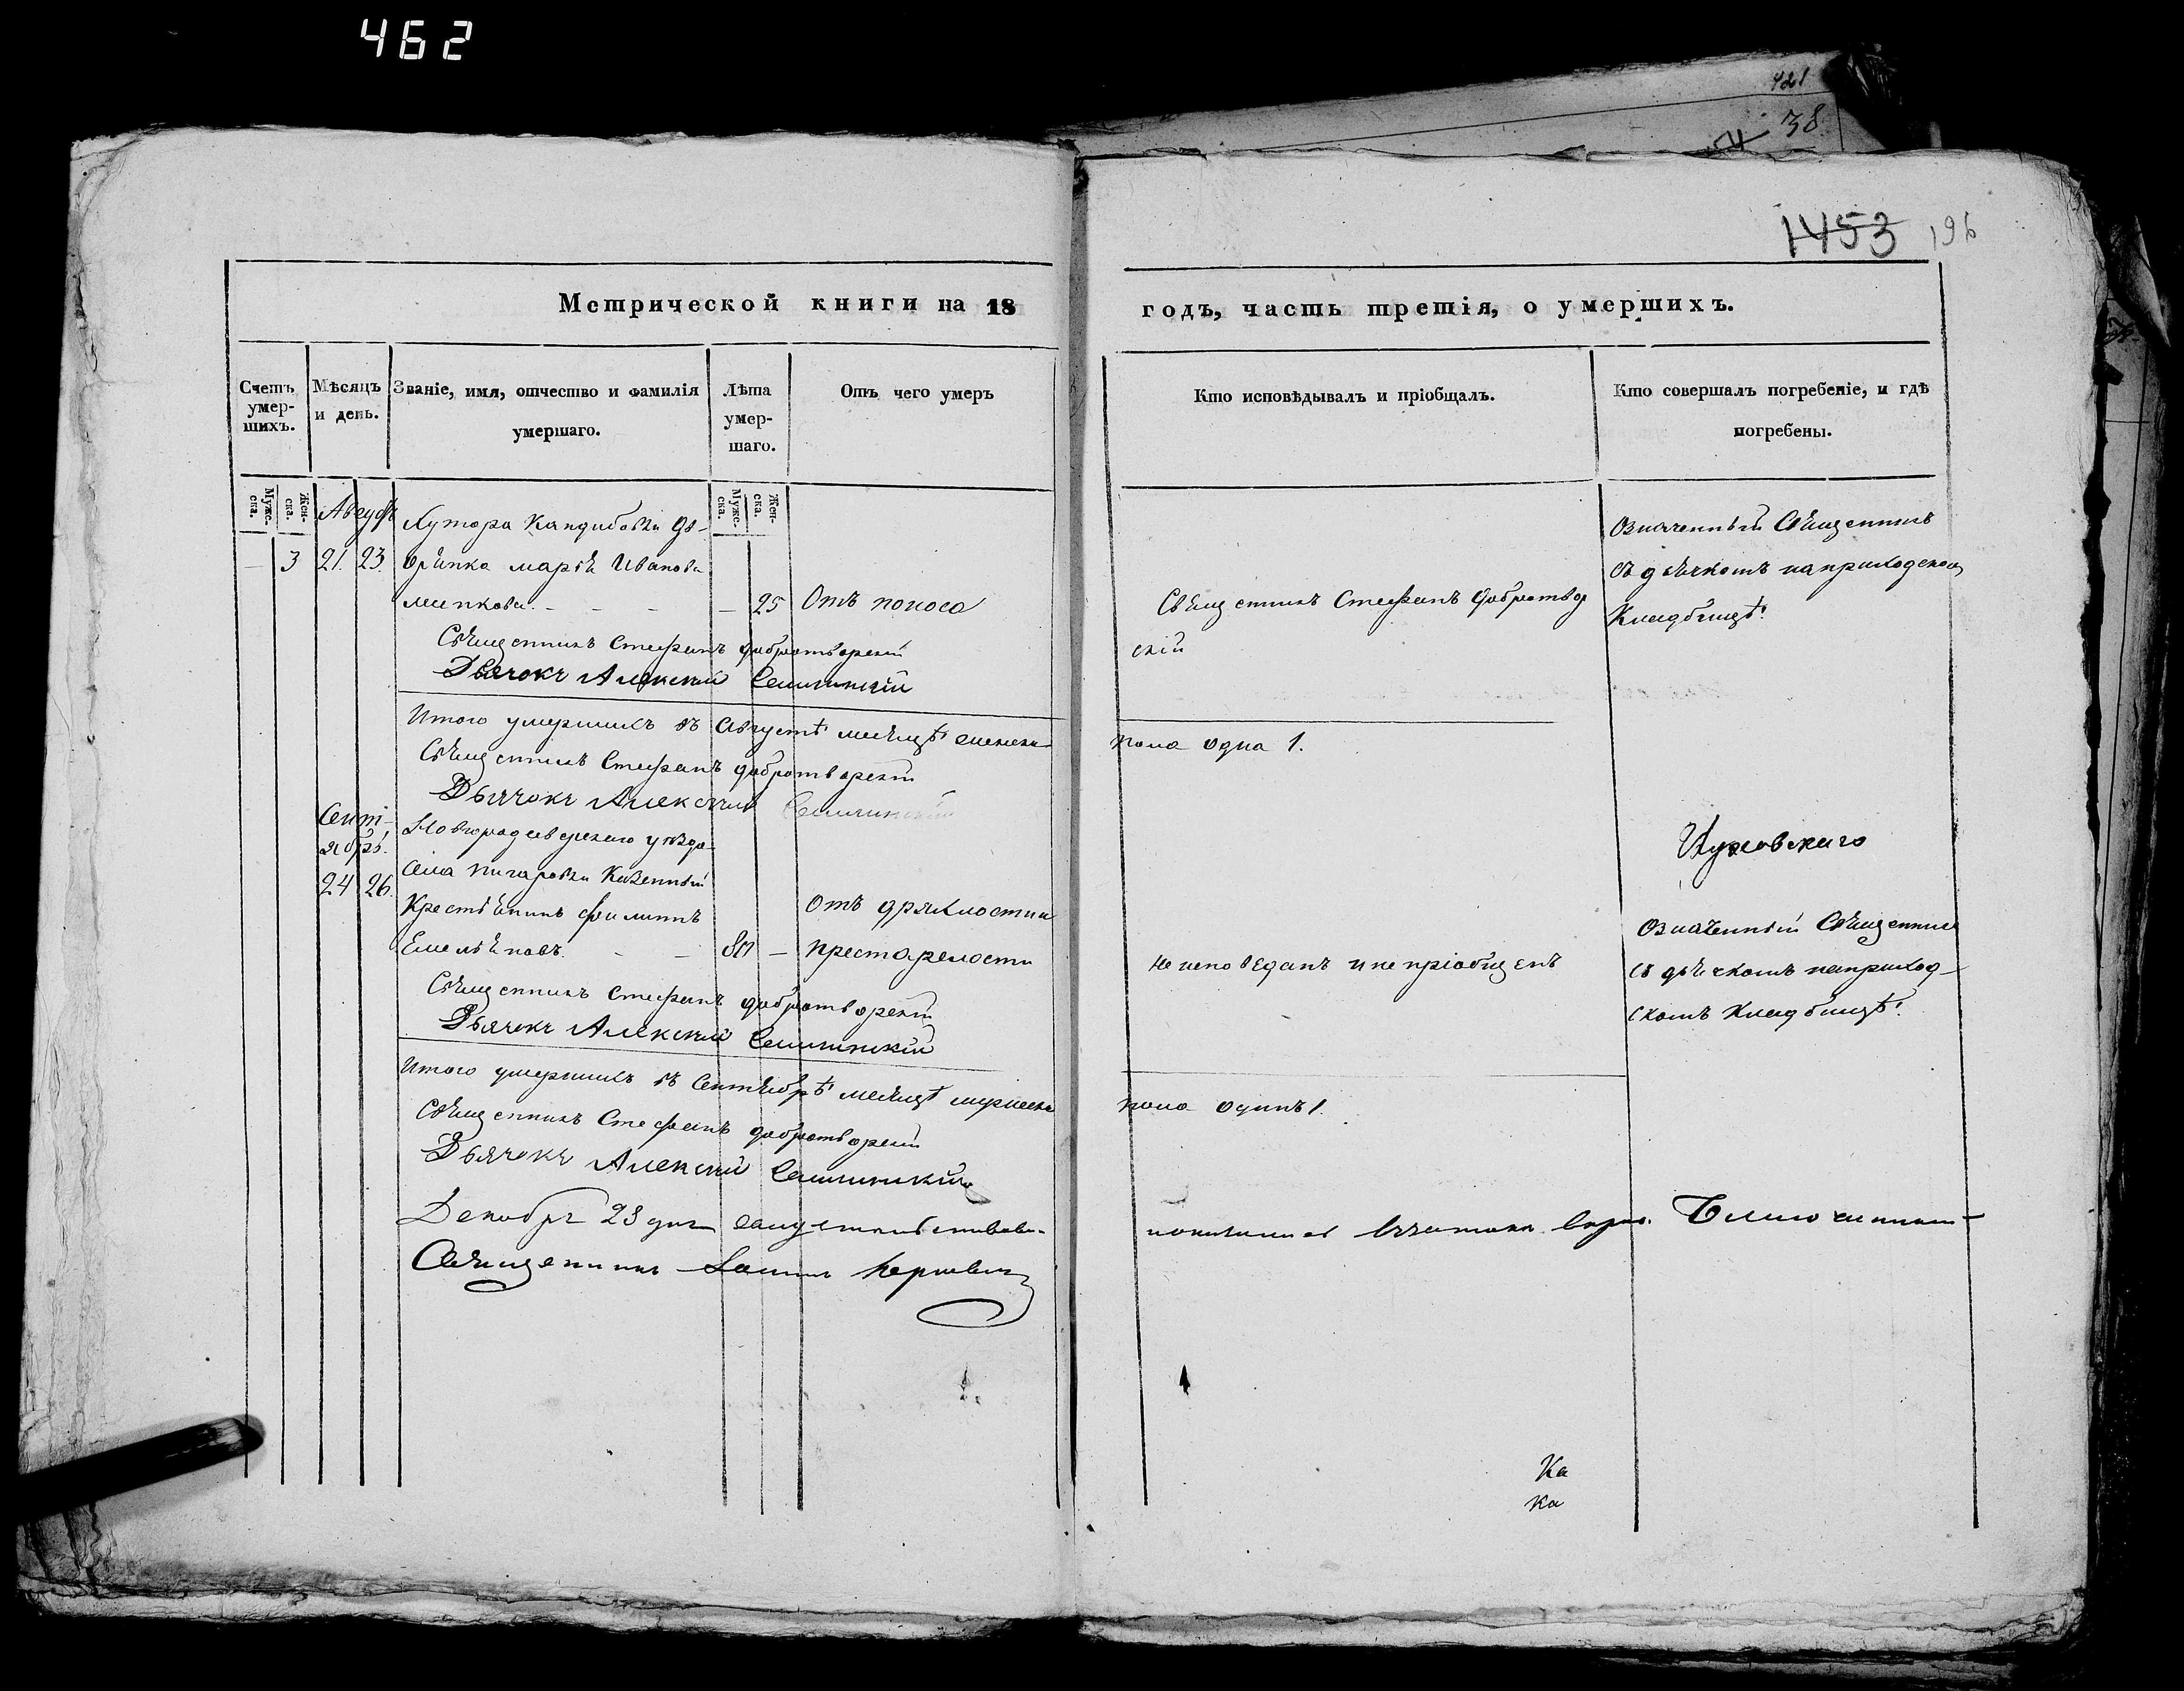 462
421
38
1453 196
Метрической книги на 18
годъ, часть третія, о умершихъ.
Счетъ умер-шихъ.
Мѣсяцъ и день.
Званіе, имя, отчество и фамилія умершаго.
Лѣта умер-шаго.
Отъ чего умеръ
Кто исповѣдывалъ и пріобщалъ.
Кто совершалъ погребеніе, и гдѣ погребены.
Мужс-ска.
Жен-ска.
Мужс-ска.
Жен-ска.
Августъ
— 3 21. 23.
Хутора Кандибовки дв-
орянка марія Иванова
— 25 Отъ поноса
Священникъ Стефанъ Добротвор
скій
Означенный Священникъ
съ дьячкомъ наприходском
Кладбищѣ.
Священникъ Стефанъ Добротворскій
Дьячокъ Алексѣй
Итого умершихъ въ Августѣ месяцѣ женска
пола одна 1.
Священникъ Стефанъ Добротворскій
Дьячокъ Алексѣй
Сент-
ября.
24 26.
Новгородсеверскаго уезда
села Пигаровки Казенный
Крестьянинъ Филиппъ
Емельяновъ. — — 80 —
Отъ дряхлости
престарелости
не исповеданъ и не пріобщенъ
Означенный Священник
съ дьячкомъ наприход-
скомъ кладбищѣ.
Священникъ Стефанъ Добротворскій
Дьячокъ Алексѣй
Итого умершихъ въ Сентябрѣ месяцѣ мужеска
пола одинъ 1.
Священникъ Стефанъ Добротворскій
Дьячокъ Алексѣй
Декабря 23 дня
Священникъ
Ка
ка